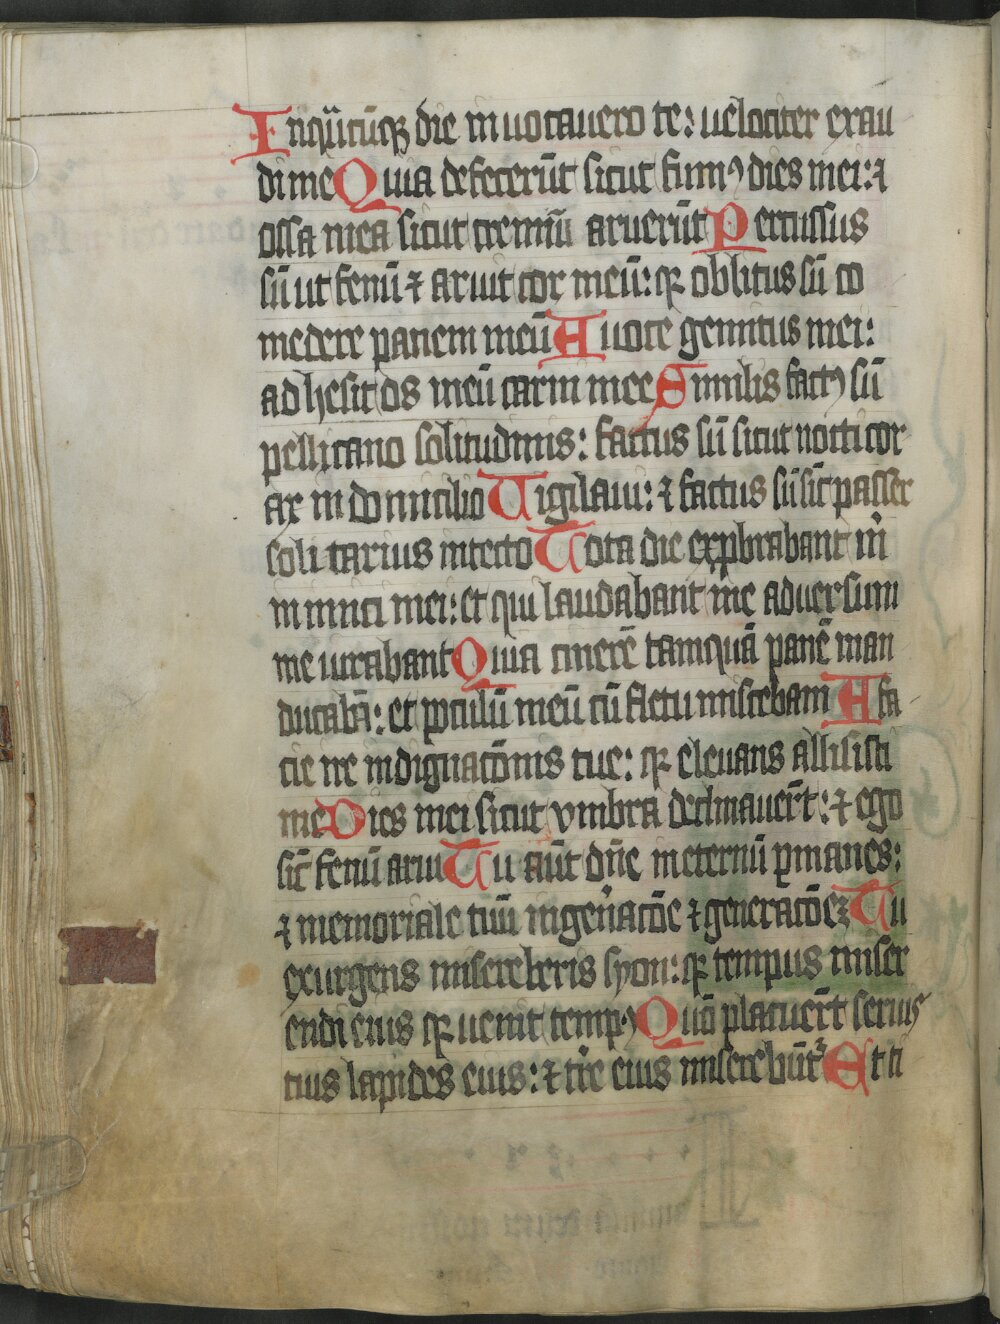 Inquācūqꝫ die inuocauero te: uelociter exau
di me Quia defecerūt sicut fumꝰ dies mei: ⁊
ossa mea sicut cremiū aruerūt Percussus
sū ut fenū ⁊ aruit cor meū: qꝛ oblitus sū co
medere panem meū A uoce gemitus mei:
adhesit os meū carni mee Similis factꝰ sū
pellicano solitudinis: factus sū sicut nocticor
ax in domicilio Vigilaui: ⁊ factus sū sic̄ passer
soli tarius intecto Tota die exprobrabant m̄
inimici mei: et qui laudabant me aduersum
me iurabant Quia cinerē tamquā panē man
ducabā: et poculū meū cū fletu miscebam A fa
cie ire indignacōnis tue: qꝛ eleuans allisisti
me Dies mei sicut vmbra declinauer̄t: ⁊ ego
sic̄ fenū arui Tu aūt dn̄e ineternū ꝑmanes:
⁊ memoriale tuū ingen̄acōe ⁊ generacōeꝫ Tu
exurgens misereberis syon: qꝛ tempus miser
endi eius qꝛ uenit tempꝰ Quō placuer̄t seruis
tuis lapides eius: ⁊ tr̄e eius miserebūt᷑ Et ti